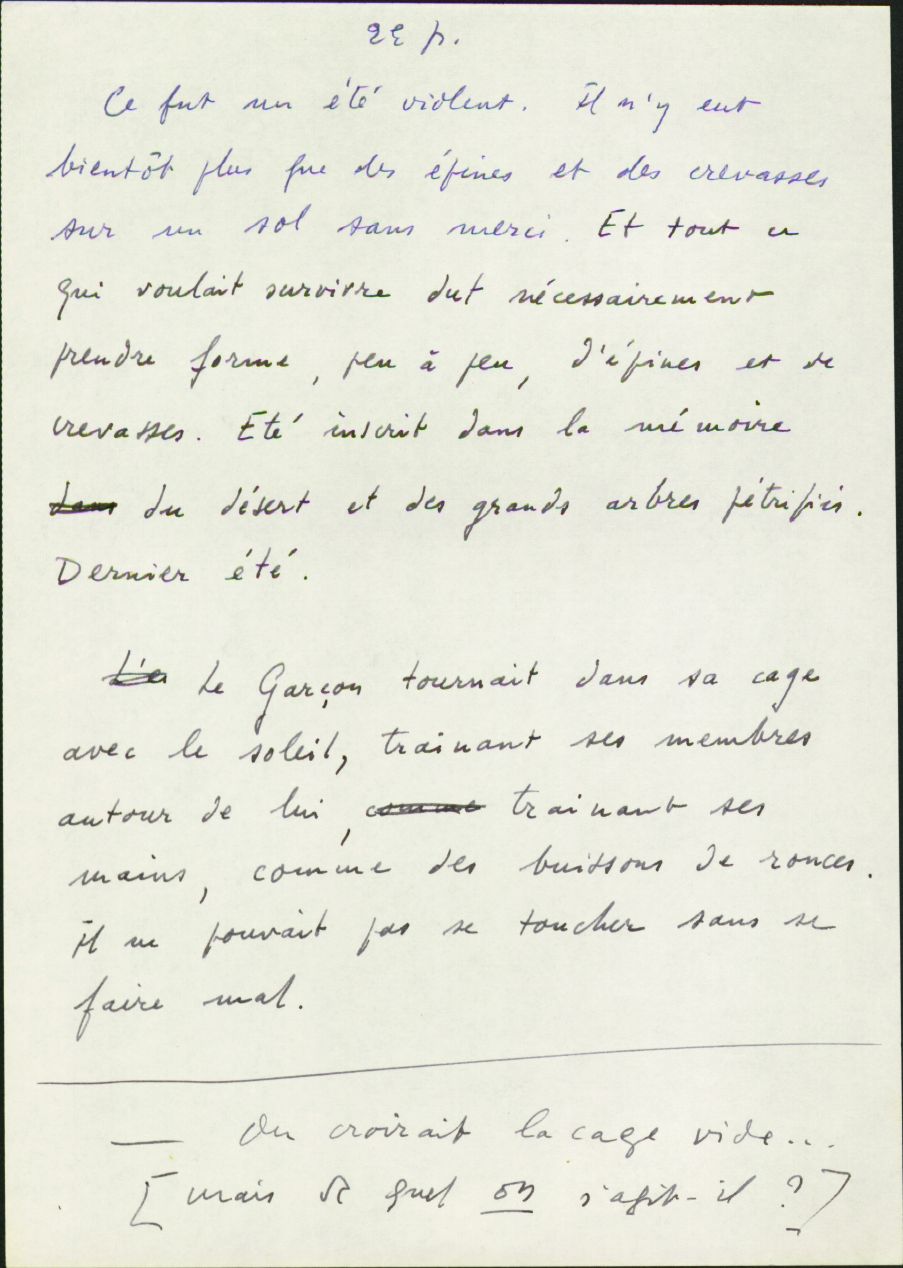 2e p.
Ce fut un été violent. Il n'y eut
bientôt plus que des épines et des crevasses
sur un sol sans merci. Et tout ce
qui voulait survivre dut nécessairement
prendre forme, peu à peu, d'épines et de
crevasses. Eté inscrit dans la mémoire
dans du désert et des grands arbres pétrifiés.
Dernier été.
Le Garçon tournait dans sa cage
avec le soleil, trainant ses membres
autour de lui, comme trainant ses
mains, comme des buissons de ronces.
Il ne pouvait pas se toucher sans se
faire mal.
— On croirait la cage vide...
[mais de quel on s'agit-il ?]